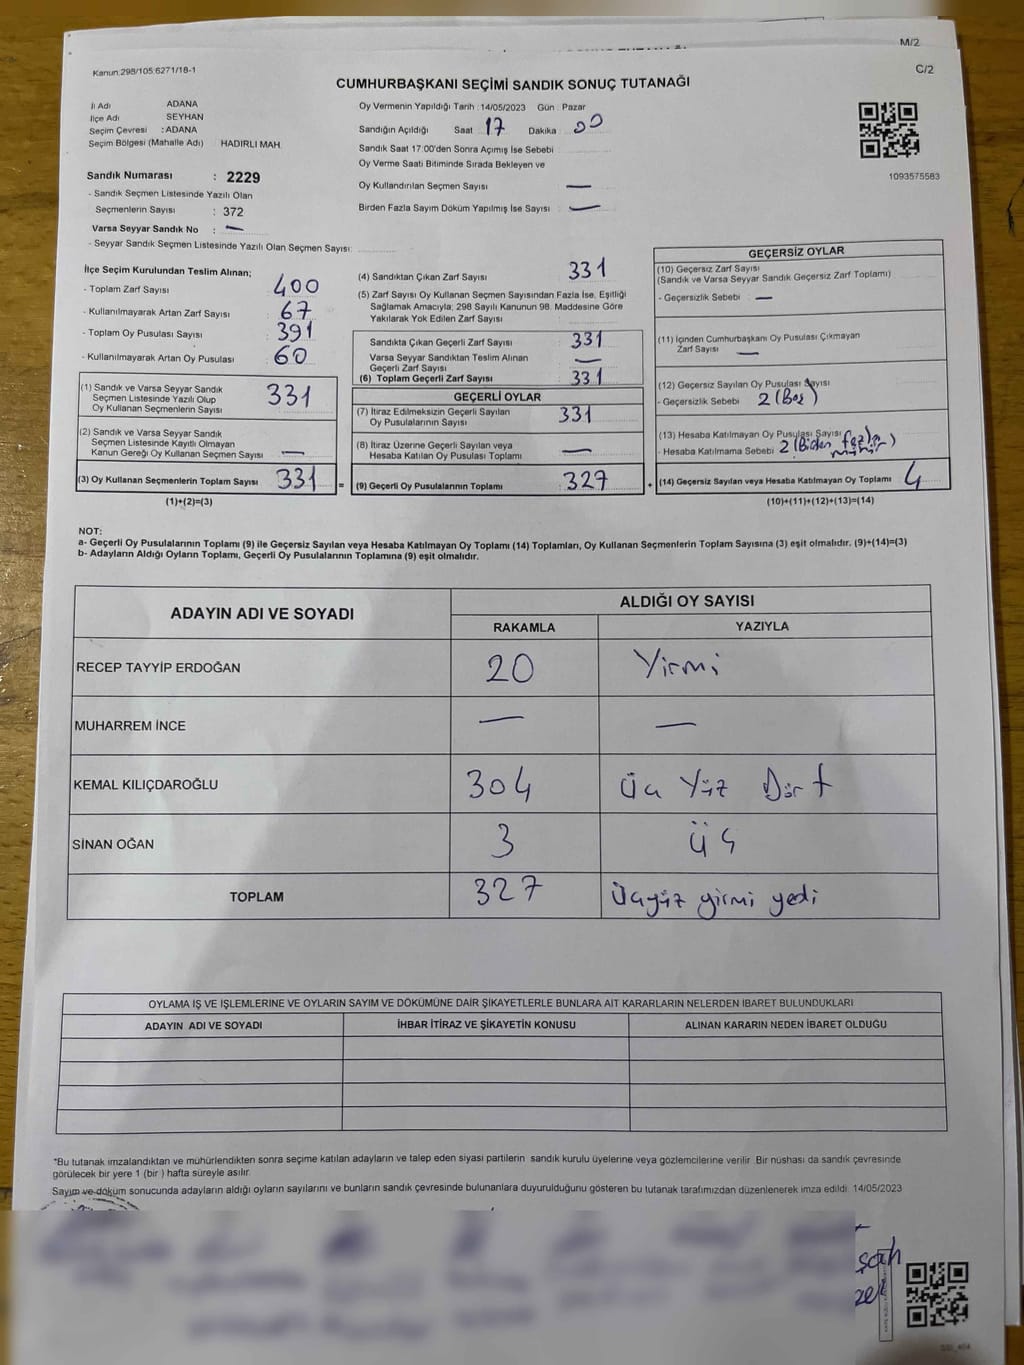 M/2
C/2
Kanun:298/105:6271/18-1
CUMHURBAŞKANI SEÇİMİ SANDIK SONUÇ TUTANAĞI
İl Adı ADANA
İlçe Adı SEYHAN
Seçim Çevresi : ADANA
Seçim Bölgesi (Mahalle Adı) HADIRLI MAH.
Oy Vermenin Yapıldığı Tarih : 14/05/2023 Gün : Pazar
Sandığın Açıldığı Saat 17 Dakika 00
Sandık Saat 17:00'den Sonra Açımış İse Sebebi
Oy Verme Saati Bitiminde Sırada Bekleyen ve
Oy Kullandırılan Seçmen Sayısı —
Birden Fazla Sayım Döküm Yapılmış İse Sayısı —
1093575583
Sandık Numarası : 2229
- Sandık Seçmen Listesinde Yazılı Olan
Seçmenlerin Sayısı : 372
Varsa Seyyar Sandık No : —
- Seyyar Sandık Seçmen Listesinde Yazılı Olan Seçmen Sayısı:
İlçe Seçim Kurulundan Teslim Alınan;
- Toplam Zarf Sayısı : 400
- Kullanılmayarak Artan Zarf Sayısı : 67
- Toplam Oy Pusulası Sayısı : 391
- Kullanılmayarak Artan Oy Pusulası : 60
(1) Sandık ve Varsa Seyyar Sandık
Seçmen Listesinde Yazılı Olup
Oy Kullanan Seçmenlerin Sayısı 331
(2) Sandık ve Varsa Seyyar Sandık
Seçmen Listesinde Kayıtlı Olmayan
Kanun Gereği Oy Kullanan Seçmen Sayısı —
(3) Oy Kullanan Seçmenlerin Toplam Sayısı 331
(1)+(2)=(3)
(4) Sandıktan Çıkan Zarf Sayısı 331
(5) Zarf Sayısı Oy Kullanan Seçmen Sayısından Fazla İse, Eşitliği
Sağlamak Amacıyla; 298 Sayılı Kanunun 98. Maddesine Göre
Yakılarak Yok Edilen Zarf Sayısı
Sandıkta Çıkan Geçerli Zarf Sayısı 331
Varsa Seyyar Sandıktan Teslim Alınan
Geçerli Zarf Sayısı —
(6) Toplam Geçerli Zarf Sayısı 331
GEÇERLİ OYLAR
(7) İtiraz Edilmeksizin Geçerli Sayılan
Oy Pusulasının Sayısı 331
(8) İtiraz Üzerine Geçerli Sayılan veya
Hesaba Katılan Oy Pusulası Toplamı —
= (9) Geçerli Oy Pusulalarının Toplamı 327
GEÇERSİZ OYLAR
(10) Geçersiz Zarf Sayısı
(Sandık ve Varsa Seyyar Sandık Geçersiz Zarf Toplamı)
- Geçersizlik Sebebi : —
(11) İçinden Cumhurbaşkanı Oy Pusulası Çıkmayan
Zarf Sayısı —
(12) Geçersiz Sayılan Oy Pusulası Sayısı
- Geçersizlik Sebebi 2 (Boş)
(13) Hesaba Katılmayan Oy Pusulası Sayısı
- Hesaba Katılmama Sebebi 2 (Biden fazla mühür)
+ (14) Geçersiz Sayılan veya Hesaba Katılmayan Oy Toplamı 4
(10)+(11)+(12)+(13)=(14)
NOT:
a- Geçerli Oy Pusulalarının Toplamı (9) ile Geçersiz Sayılan veya Hesaba Katılmayan Oy Toplamı (14) Toplamları, Oy Kullanan Seçmenlerin Toplam Sayısına (3) eşit olmalıdır. (9)+(14)=(3)
b- Adayların Aldığı Oyların Toplamı, Geçerli Oy Pusulalarının Toplamına (9) eşit olmalıdır.
ADAYIN ADI VE SOYADI ALDIĞI OY SAYISI
RAKAMLA YAZIYLA
RECEP TAYYİP ERDOĞAN 20 Yirmi
MUHARREM İNCE — —
KEMAL KILIÇDAROĞLU 304 Üç Yüz Dört
SİNAN OĞAN 3 üç
TOPLAM 327 Üçyüz yirmi yedi
OYLAMA İŞ VE İŞLEMLERİNE VE OYLARIN SAYIM VE DÖKÜMÜNE DAİR ŞİKAYETLERLE BUNLARA AİT KARARLARIN NELERDEN İBARET BULUNDUKLARI
ADAYIN ADI VE SOYADI İHBAR İTİRAZ VE ŞİKAYETİN KONUSU ALINAN KARARIN NEDEN İBARET OLDUĞU
*Bu tutanak imzalandıktan ve mühürlendikten sonra seçime katılan adayların ve talep eden siyasi partilerin sandık kurulu üyelerine veya gözlemcilerine verilir. Bir nüshası da sandık çevresinde
görülecek bir yere 1 (bir ) hafta süreyle asılır.
Sayım ve döküm sonucunda adayların aldığı oyların sayılarını ve bunların sandık çevresinde bulunanlara duyurulduğunu gösteren bu tutanak tarafımızdan düzenlenerek imza edildi. 14/05/2023